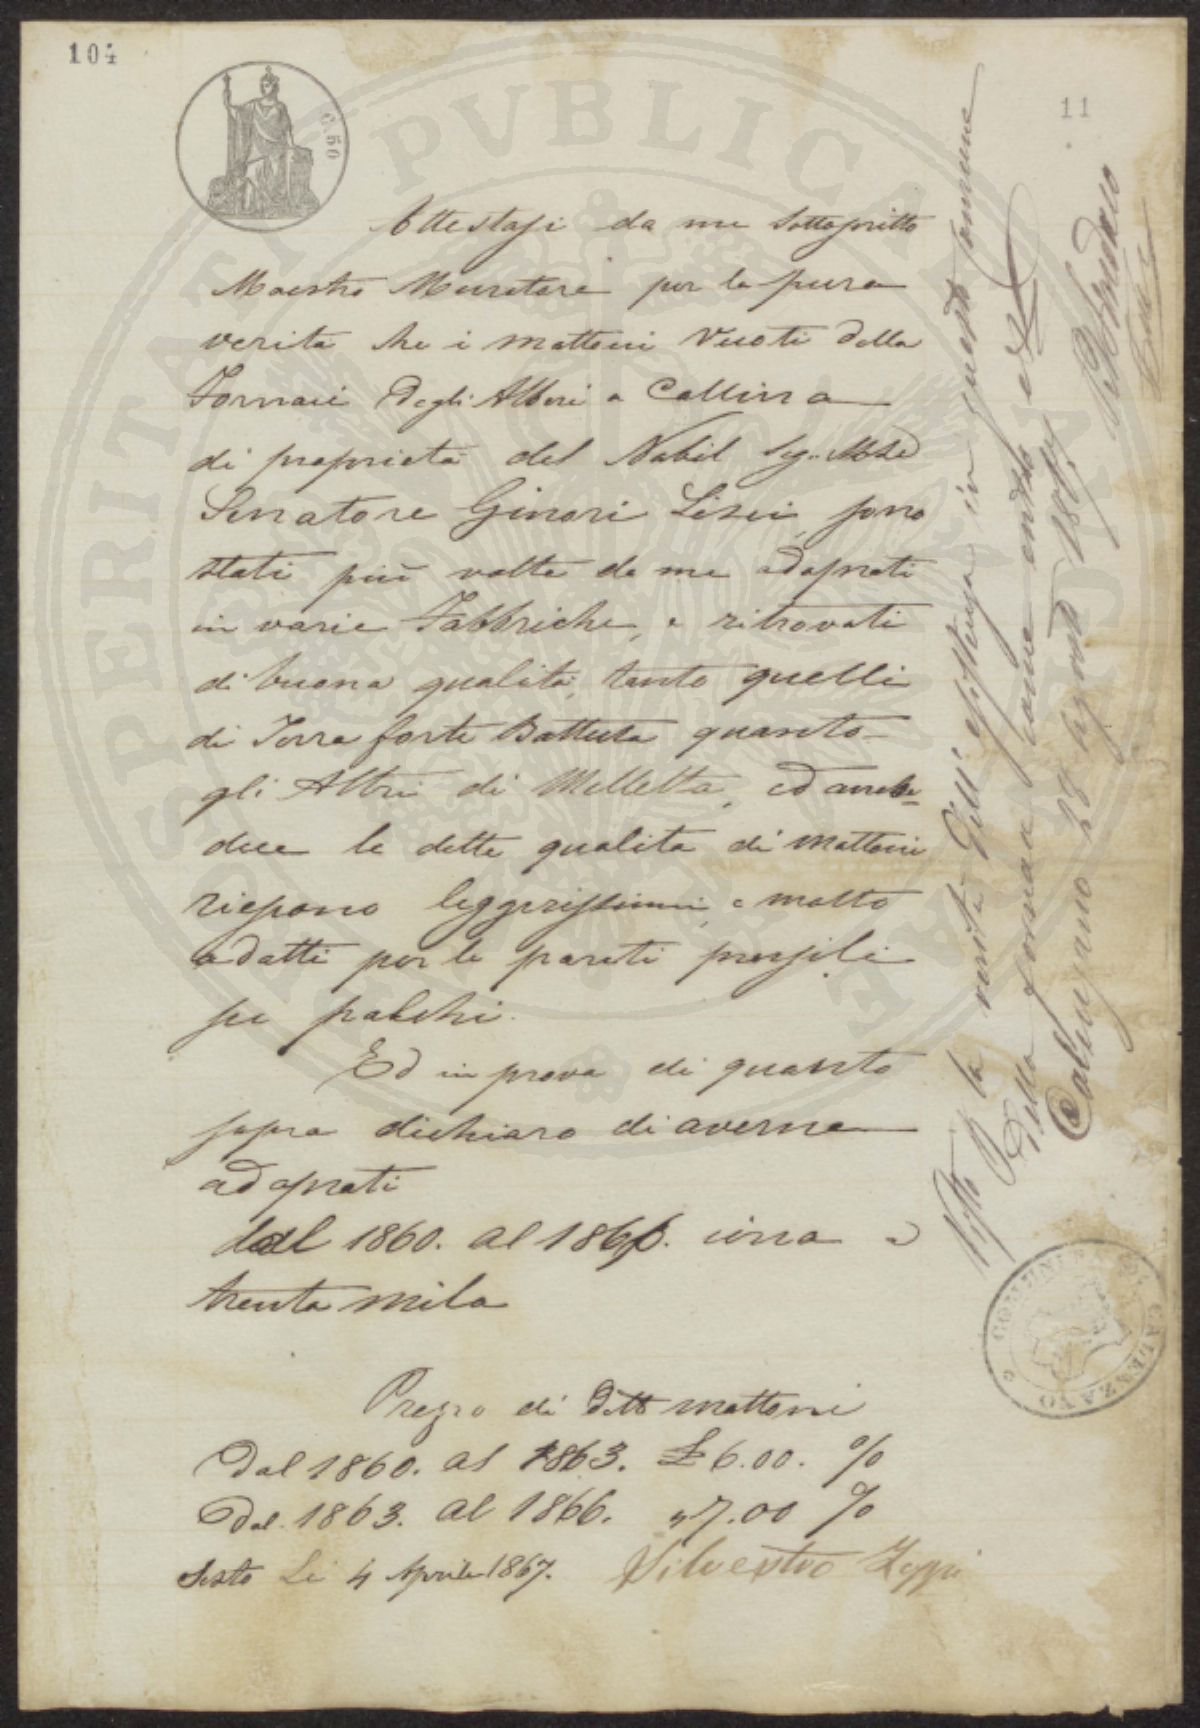 104
11
C. 50
Attestasi da me Sottoscritto
Maestro Muratore per la pura
verita che i mattoni Vuoti della
Fornace Degli Alberi a Collina
di proprieta del Nobil Sig.
Senatore Ginori Lisci, sono
stati più volte da me adoprati
in varie Fabbriche, e ritrovati
di buona qualità, tanto quelli
di Terra forte Battuta quanto
gli Altri di Melletta, ed
due le dette qualita di mattoni
riescono leggerissimi, e molto
adatti per le pareti
su palchi.
Ed in prova di quanto
sopra dichiaro di averne
adoprati
dal 1860. al 1866. circa a
trenta mila
Prezzo di Detti mattoni
Dal 1860. al 1863. £ 6.00. %
Dal. 1863. al 1866. " 7.00 %
Sesto Li 4 Aprile 1867. Silvestro Zeppi
Visto la verità dell' esistenza in questo comune
della fornace come contro
Calenzano 28 agosto 1867
Il Sindaco
COMUNITA DI CALENZANO
PERITATI PVBLICAE